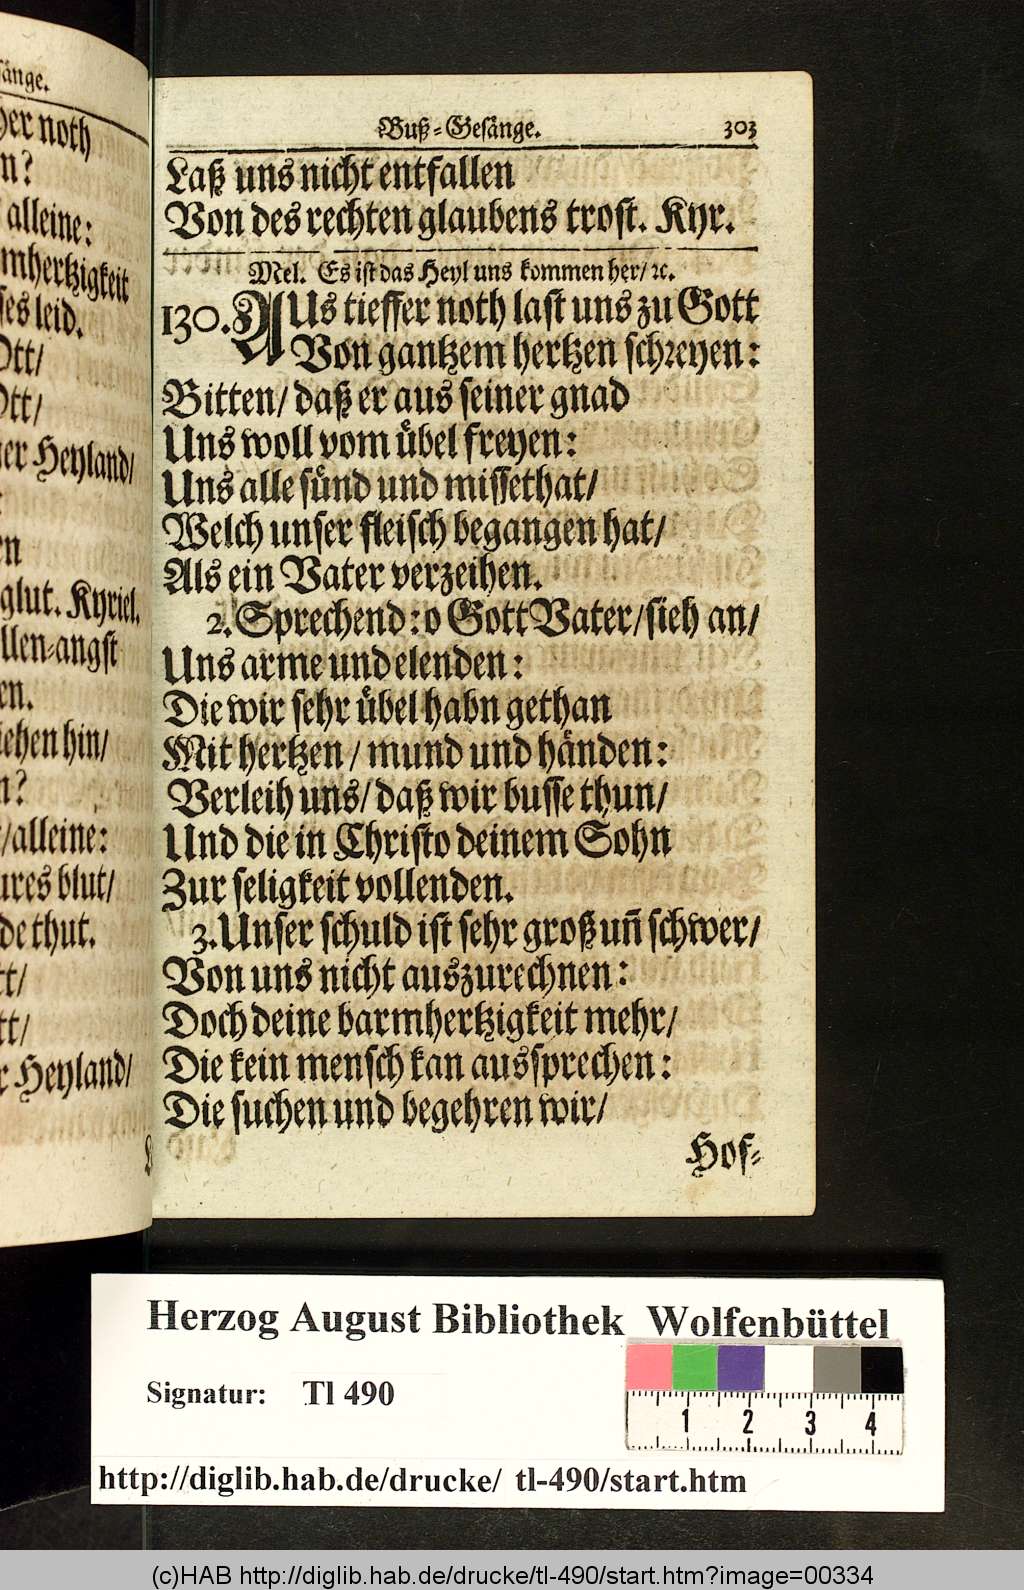 sänge.
her noth
n?
alleine:
mhertzigkeit
ses leid.
Ott/
Ott/
ner Heyland/
en
glut. Kyriel.
llen-angst
en.
iehen hin/
n?
/alleine:
ures blut/
de thut.
tt/
tt/
r Heyland/
Buß-Gesänge. 303
Laß uns nicht entfallen
Von des rechten glaubens trost. Kyr.
Mel. Es ist das Heyl uns kommen her/ ꝛc.
130. AUs tieffer noth last uns zu Gott
Von gantzem hertzen schreyen:
Bitten/ daß er aus seiner gnad
Uns woll vom übel freyen:
Uns alle sünd und missethat/
Welch unser fleisch begangen hat/
Als ein Vater verzeihen.
2. Sprechend: o Gott Vater/ sieh an/
Uns arme und elenden:
Die wir sehr übel habn gethan
Mit hertzen/ mund und händen:
Verleih uns/ daß wir busse thun/
Und die in Christo deinem Sohn
Zur seligkeit vollenden.
3. Unser schuld ist sehr groß un̄ schwer/
Von uns nicht auszurechnen:
Doch deine barmhertzigkeit mehr/
Die kein mensch kan aussprechen:
Die suchen und begehren wir/
Hof-
Herzog August Bibliothek Wolfenbüttel
Signatur: Tl 490
1 2 3 4
http://diglib.hab.de/drucke/ tl-490/start.htm
(c)HAB http://diglib.hab.de/drucke/tl-490/start.htm?image=00334